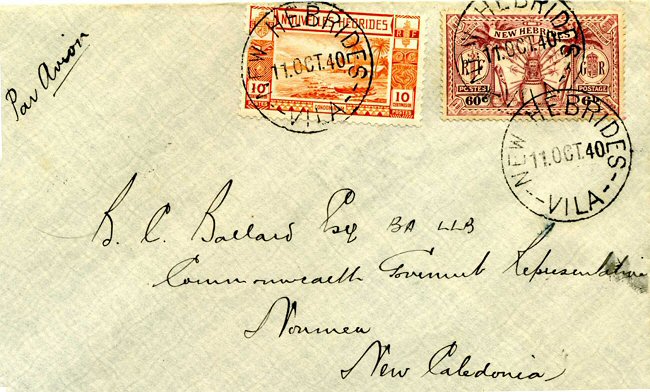 Par Avion
NOUVELLES HÉBRIDES
R F
10c
10
CENTIMES
NEW HEBRIDES
11.OCT.40
VILA
NEW HEBRIDES
R F
G R
POSTES
POSTAGE
60c
6D
NEW HEBRIDES
11.OCT.40
VILA
NEW HEBRIDES
11.OCT.40
VILA
B. C. Ballard Esq BA LLB
Commonwealth Goverment Representative
Noumea
New Caledonia